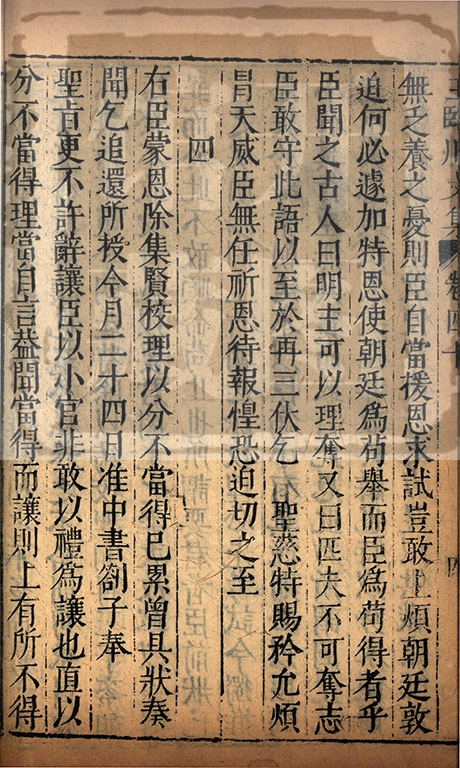 王臨川文集 卷四十 四
無乏養之憂則臣自當援恩求試豈敢上煩朝廷敦
迫何必遽加特恩使朝廷爲苟舉而臣爲苟得者乎
臣聞之古人曰明主可以理奪又曰匹夫不可奪志
臣敢守此語以至於再三伏乞 聖慈特賜矜允煩
冐天威臣無任祈恩待報惶恐迫切之至
四
右臣蒙恩除集賢校理以分不當得已累曾具狀奏
聞乞追還所授今月二十四日准中書劄子奉
聖旨更不許辭讓臣以小官非敢以禮爲讓也直以
分不當得理當自言葢聞當得而讓則上有所不得